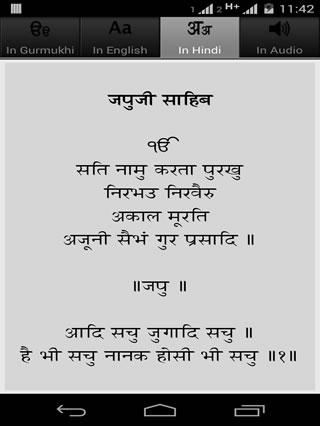 1 2 H+ 11:42
ੳਉ Aa अअ
In Gurmukhi In English In Hindi In Audio
जपुजी साहिब
ੴ
सति नामु करता पुरखु
निरभउ निरवैरु
अकाल मूरति
अजूनी सैभं गुर प्रसादि ॥
॥जपु ॥
आदि सचु जुगादि सचु ॥
है भी सचु नानक होसी भी सचु ॥१॥